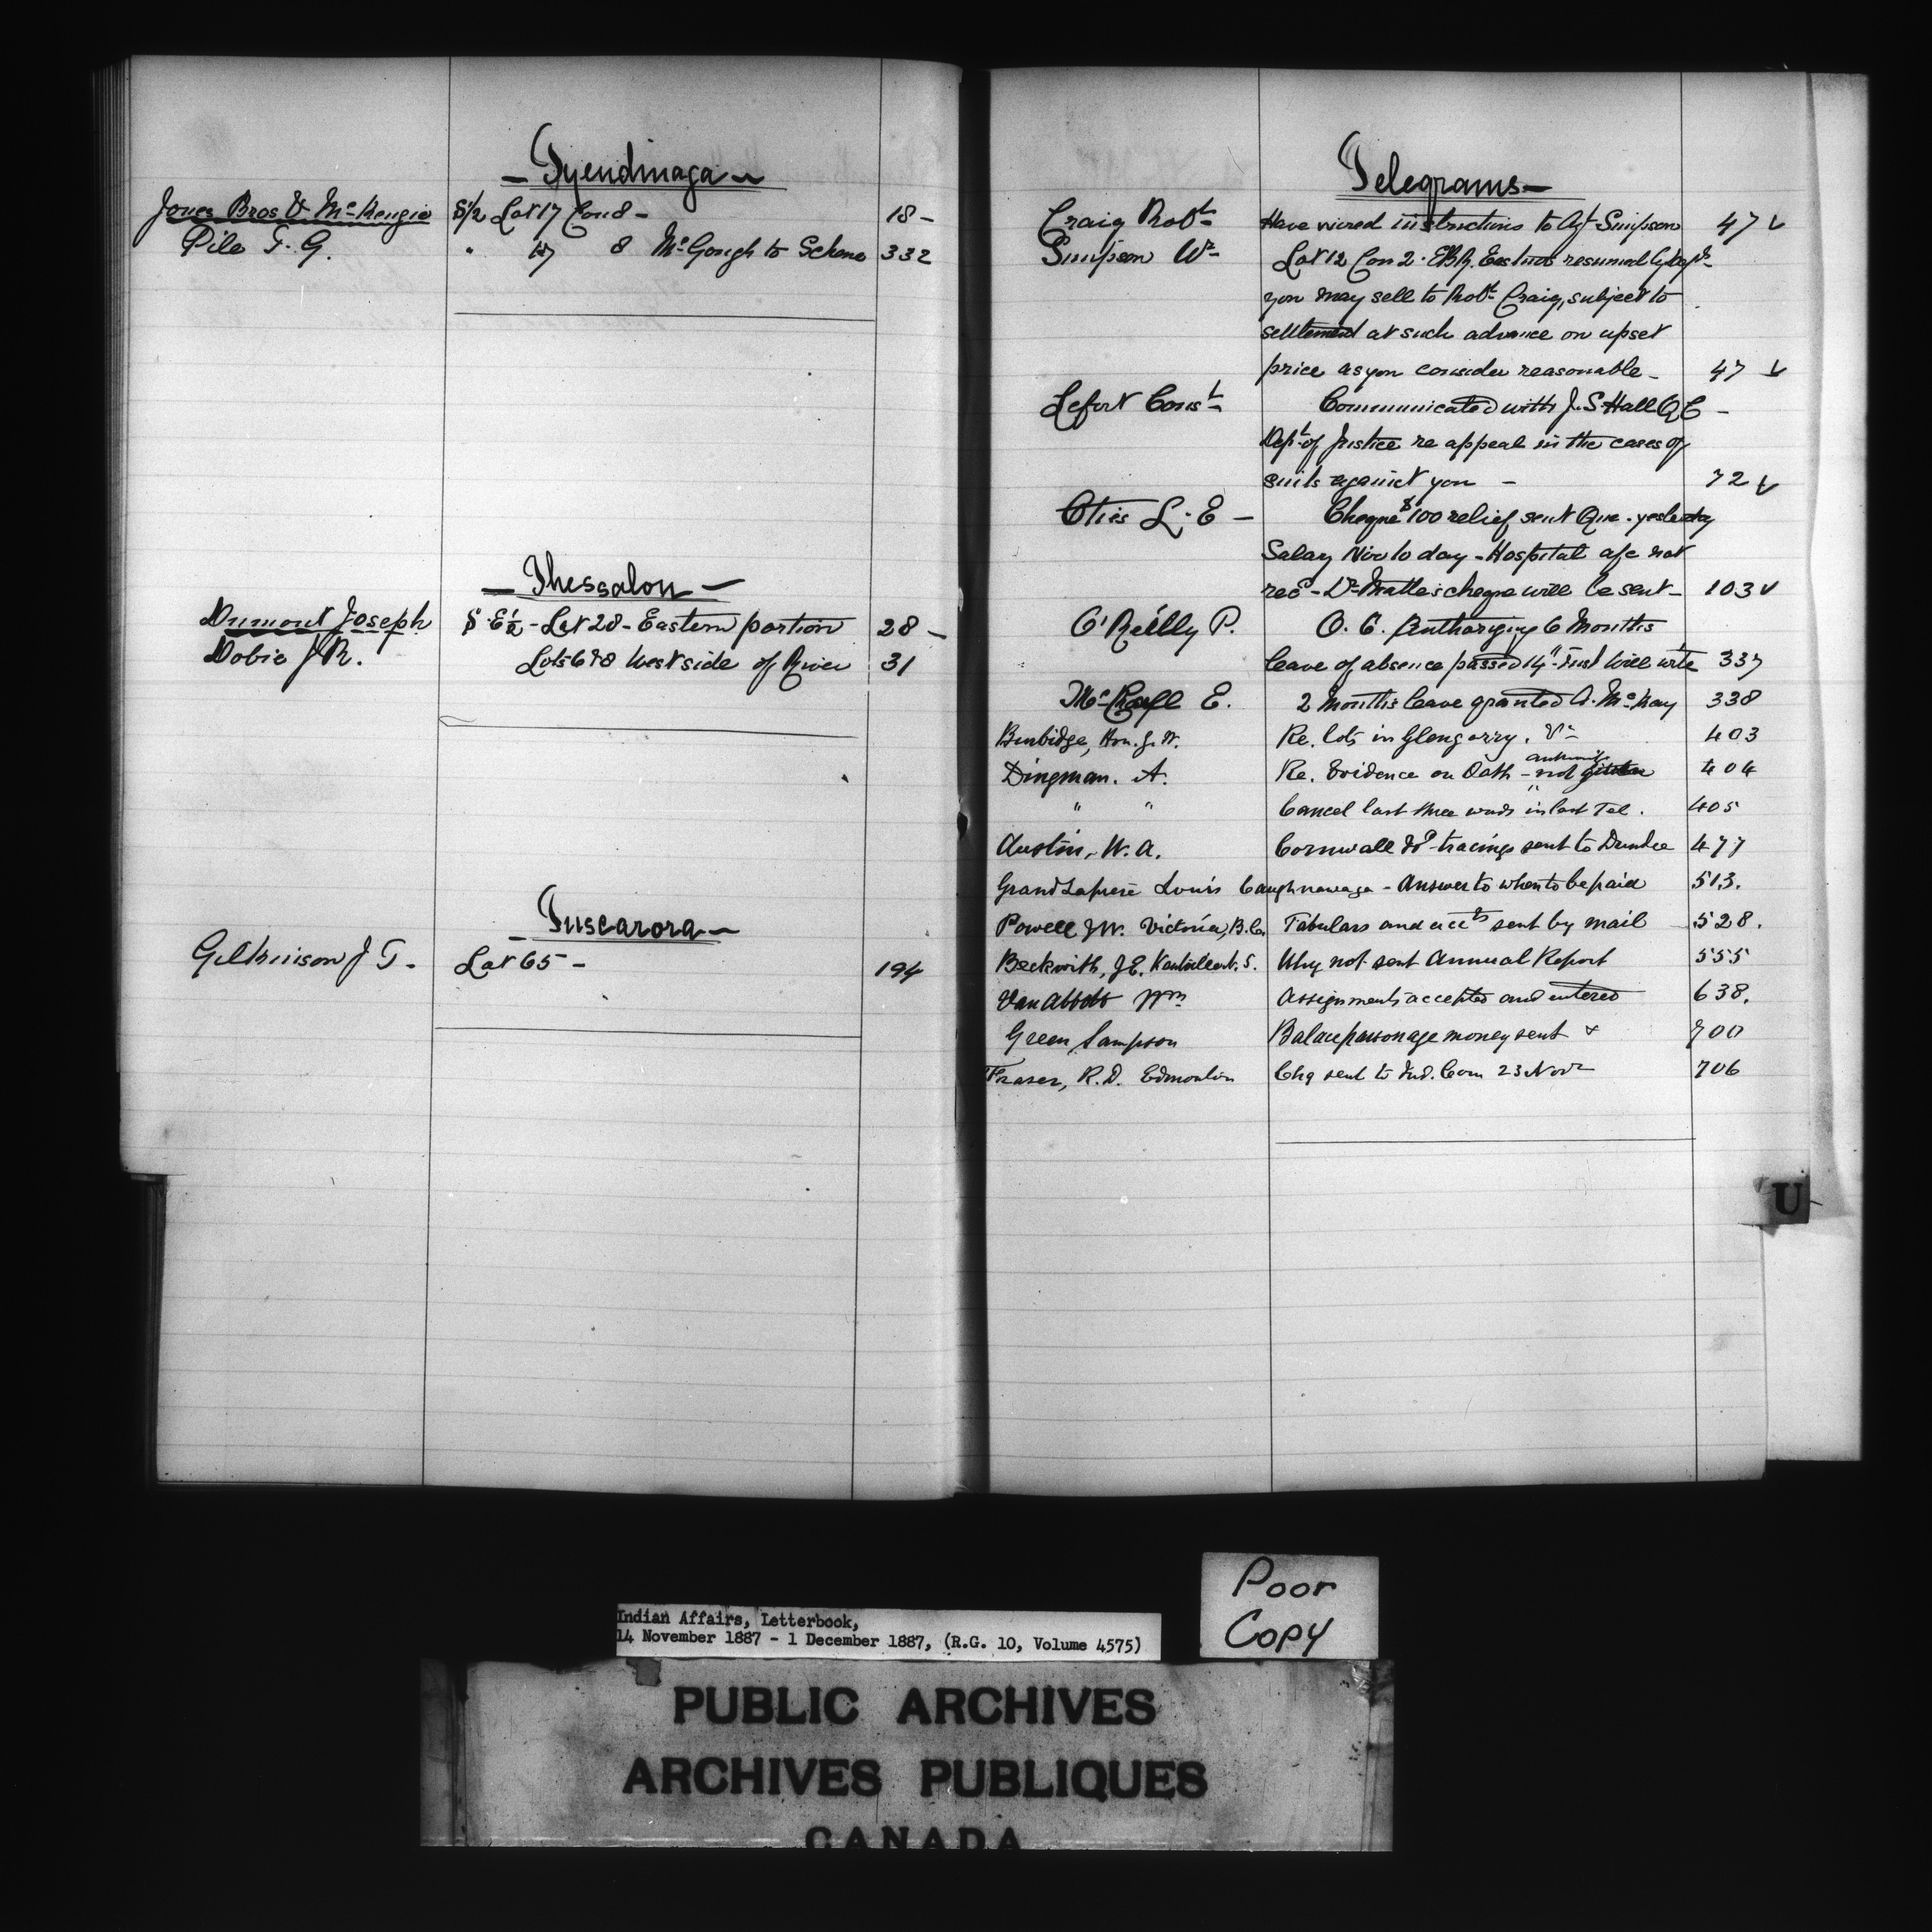 — Tyendinaga —
Jones Bros & McKenzie S½ Lot 17 Con 8 — 18 —
Pile T. G. " 17 8 McGough to Schene 332
— Thessalon —
Dumont Joseph S. E½ - Lot 28 - Eastern portion 28 —
Dobie J R. Lots 6 & 8 West side of River 31
— Tuscarora —
Gilkinson J T - Lot 65 - 194
Telegrams —
Craig Robt Have wired instructions to Agt Simpson 47 ✓
Simpson Wm Lot 12 Con 2 - EBR. Eastnor resumed by Dept
you may sell to Robt Craig, subject to
settlement at such advance on upset
price as you consider reasonable - 47 ✓
Lefort Const Communicated with J. S. Hall Q C -
Dept of Justice re appeal in the cases of
suits against you - 72 ✓
Otis L. E — Cheque $100 relief sent Que. yesterday
Salary Nov to day - Hospital a/c not
recd - Dr cheque will be sent - 103 ✓
O'Reilly P. O. C. Authorizing 6 Months
leave of absence passed 14" Inst Will write 337
McColl E. 2 Months leave granted A. McKay 338
Burbidge, Hon. G. W. Re. lots in Glengarry. 403
Dingman. A. Re. Evidence on Oath - not 404
" " Cancel last three words in last Tel. 405
Austin, W. A. Cornwall tracings sent to Dundee 477
Grand Lapreé Louis Caughnawaga - Answer to when to be paid 513.
Powell J W. Victoria, B.C. Tabulars and accts sent by mail 528.
Beckwith, J E. Kentville N. S. Why not sent Annual Report 555
Van Abbott Wm Assignments accepted and entered 638.
Green Sampson Balace parsonage money sent 700
Fraser, R. D. Edmonton Chq sent to Ind. Com 23 Novr 706
U
Poor
Copy
Indian Affairs, Letterbook,
14 November 1887 - 1 December 1887, (R.G. 10, Volume 4575)
PUBLIC ARCHIVES
ARCHIVES PUBLIQUES
CANADA